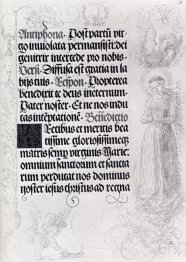 Antiphona · Post partū vir-
go inuiolata permansisti: dei
genitrix intercede pro nobis ·
Versi · Diffusa est gratia in la
bijs tuis · Respon · Propterea
benedixit te deus ineternum ·
Pater noster · Et ne nos indu
cas intēptationē · Benedictio
Precibus et meritis bea
tissime gloriosissimeqꝫ
matris semp virginis Marie:
omnium sanctorum et sancta
rum perducat nos dominus
noster iesus christus ad regna